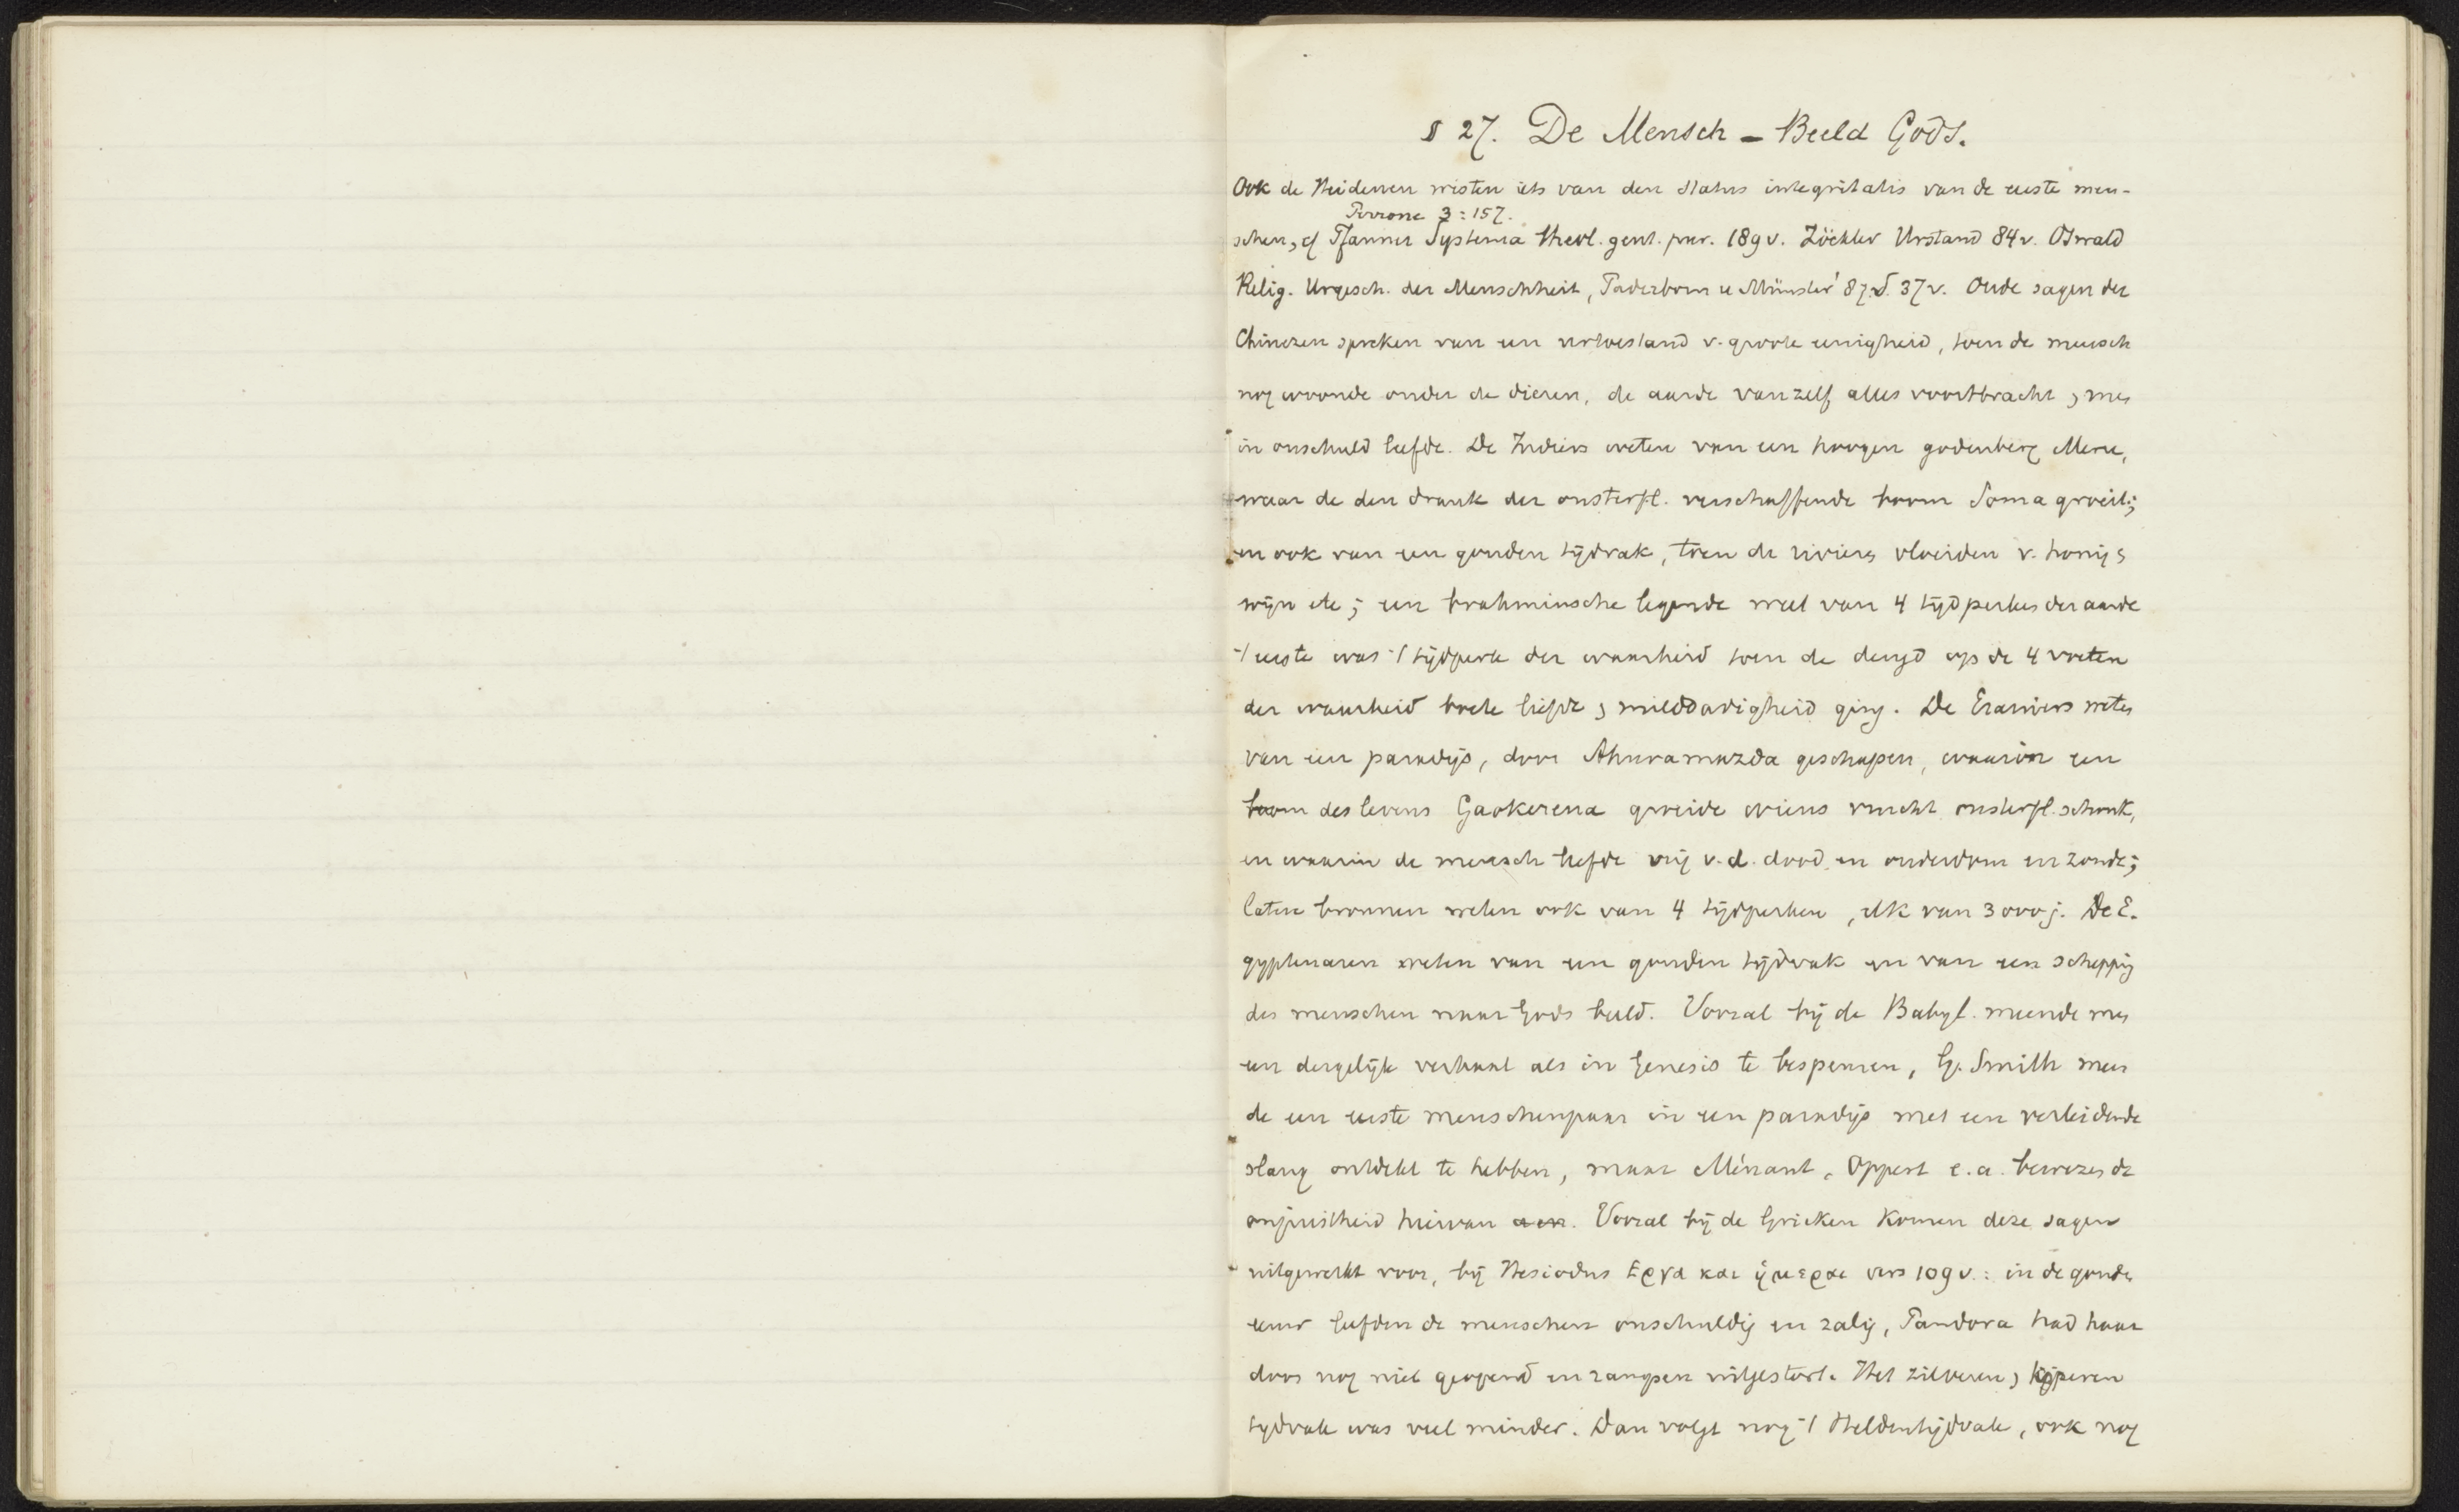 § 27. De Mensch – Beeld Gods.
Ook de Heidenen wisten iets van den status integritatis van de eerste men-
Perrone 3:157.
schen, cf Pfanner Systema theol. gent. pur. 189 v. Zöckler Urstand 84 v. Oswald
Relig. Urgesch. der Menschheit, Paderborn u Münster '87. S. 37 v. Oude sagen der
Chinezen spreken van een oertoestand v. groote eenigheid, toen de mensch
nog woonde onder de dieren, de aarde vanzelf alles voortbracht, men
in onschuld leefde. De Indiers weten van een hoogen godenberg Meru,
waar de den drank der onsterfl. verschaffende boom Soma groeit;
en ook van een gouden tijdvak, toen de rivieren vloeiden v. honig,
wijn etc; een brahminsche legende weet van 4 tijdperken der aarde
't eerste was 't tijdperk der waarheid toen de deugd op de 4 voeten
der waarheid boete liefde, milddadigheid ging. De Eraniers weten
van een paradijs, door Ahuramazda geschapen, waarin een
boom des levens Gaokerena groeide wiens vrucht onsterfl. schonk,
en waarin de mensch leefde vrij v.d. dood en ouderdom en zonde;
latere bronnen weten ook van 4 tijdperken, elk van 3000 j. De E-
gyptenaren weten van een gouden tijdvak en van een schepping
des menschen naar Gods beeld. Vooral bij de Babyl. meende men
een dergelijk verhaal als in Genesis te bespeuren, G. Smith meen
de een eerste menschenpaar in een paradijs met een verleidende
slang ontdekt te hebben, maar Ménant, Oppert e.a. bewezen de
onjuistheid hiervan aan. Vooral bij de Grieken komen deze sagen
uitgewerkt voor, bij Hesiodus Εργα και ημεραι vers 109 v.: in de gouden
eeuw leefden de menschen onschuldig en zalig, Pandora had haar
doos nog niet geopend en rampen uitgestort. Het zilveren, koperen
tydvak was veel minder. Dan volgt nog 't Heldentijdvak, ook nog